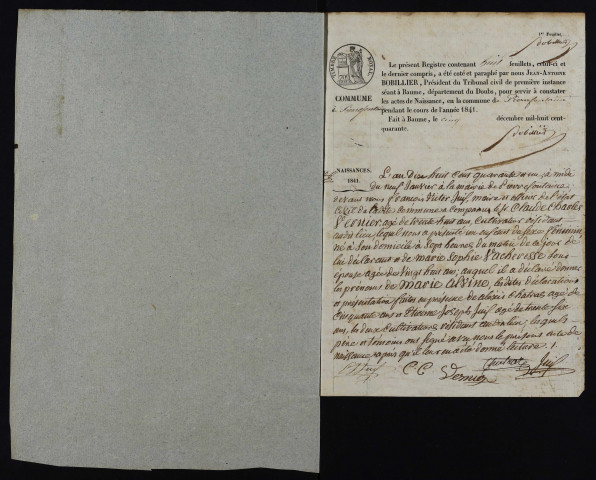 1er Feuillet
Bobillier
TIMBRE ROYAL
Le présent Registre contenant huit feuillets, celui-ci et
le dernier compris, a été coté et paraphé par nous JEAN-ANTOINE
BOBILLIER, Président du Tribunal civil de première instance
séant à Baume, département du Doubs, pour servir à constater
COMMUNE
les actes de Naissance, en la commune de Pierrefontaine
d
pendant le cours de l'année 1841.
Fait à Baume, le cinq décembre mil-huit cent-
quarante.
Bobillier
NAISSANCES.
1841.
L'an Dix huit Cent quarante et un, à midi
du neuf Janvier à la mairie de Pierrefontaine
devant nous François Victor Juif, maire officier de l'état
Civil de Commune a Comparu le Sr Claude Charles
Vernier, agé de trente huit ans, Cultivateur résidant
audit lieu, lequel nous a présenté un enfant du sexe féminin
né à Son domicile à sept heures du matin de ce jour de
lui déclarant et de marie Sophie Vacheresse Son
épouse agée de vingt huit ans; auquel il a déclaré donner
les prénoms de marie alvine, les dites déclaration
et présentation faites en présence de alexis Chatras agé de
Cinquante ans et Etienne Joseph Juif agé de trente six
ans, les deux Cultivateurs résidant audit lieu; lesquels
père et témoins ont signé avec nous le présent acte de
naissance, après qu'il leur en a été donné lecture.
Juif C C Vernier Chatras Juif